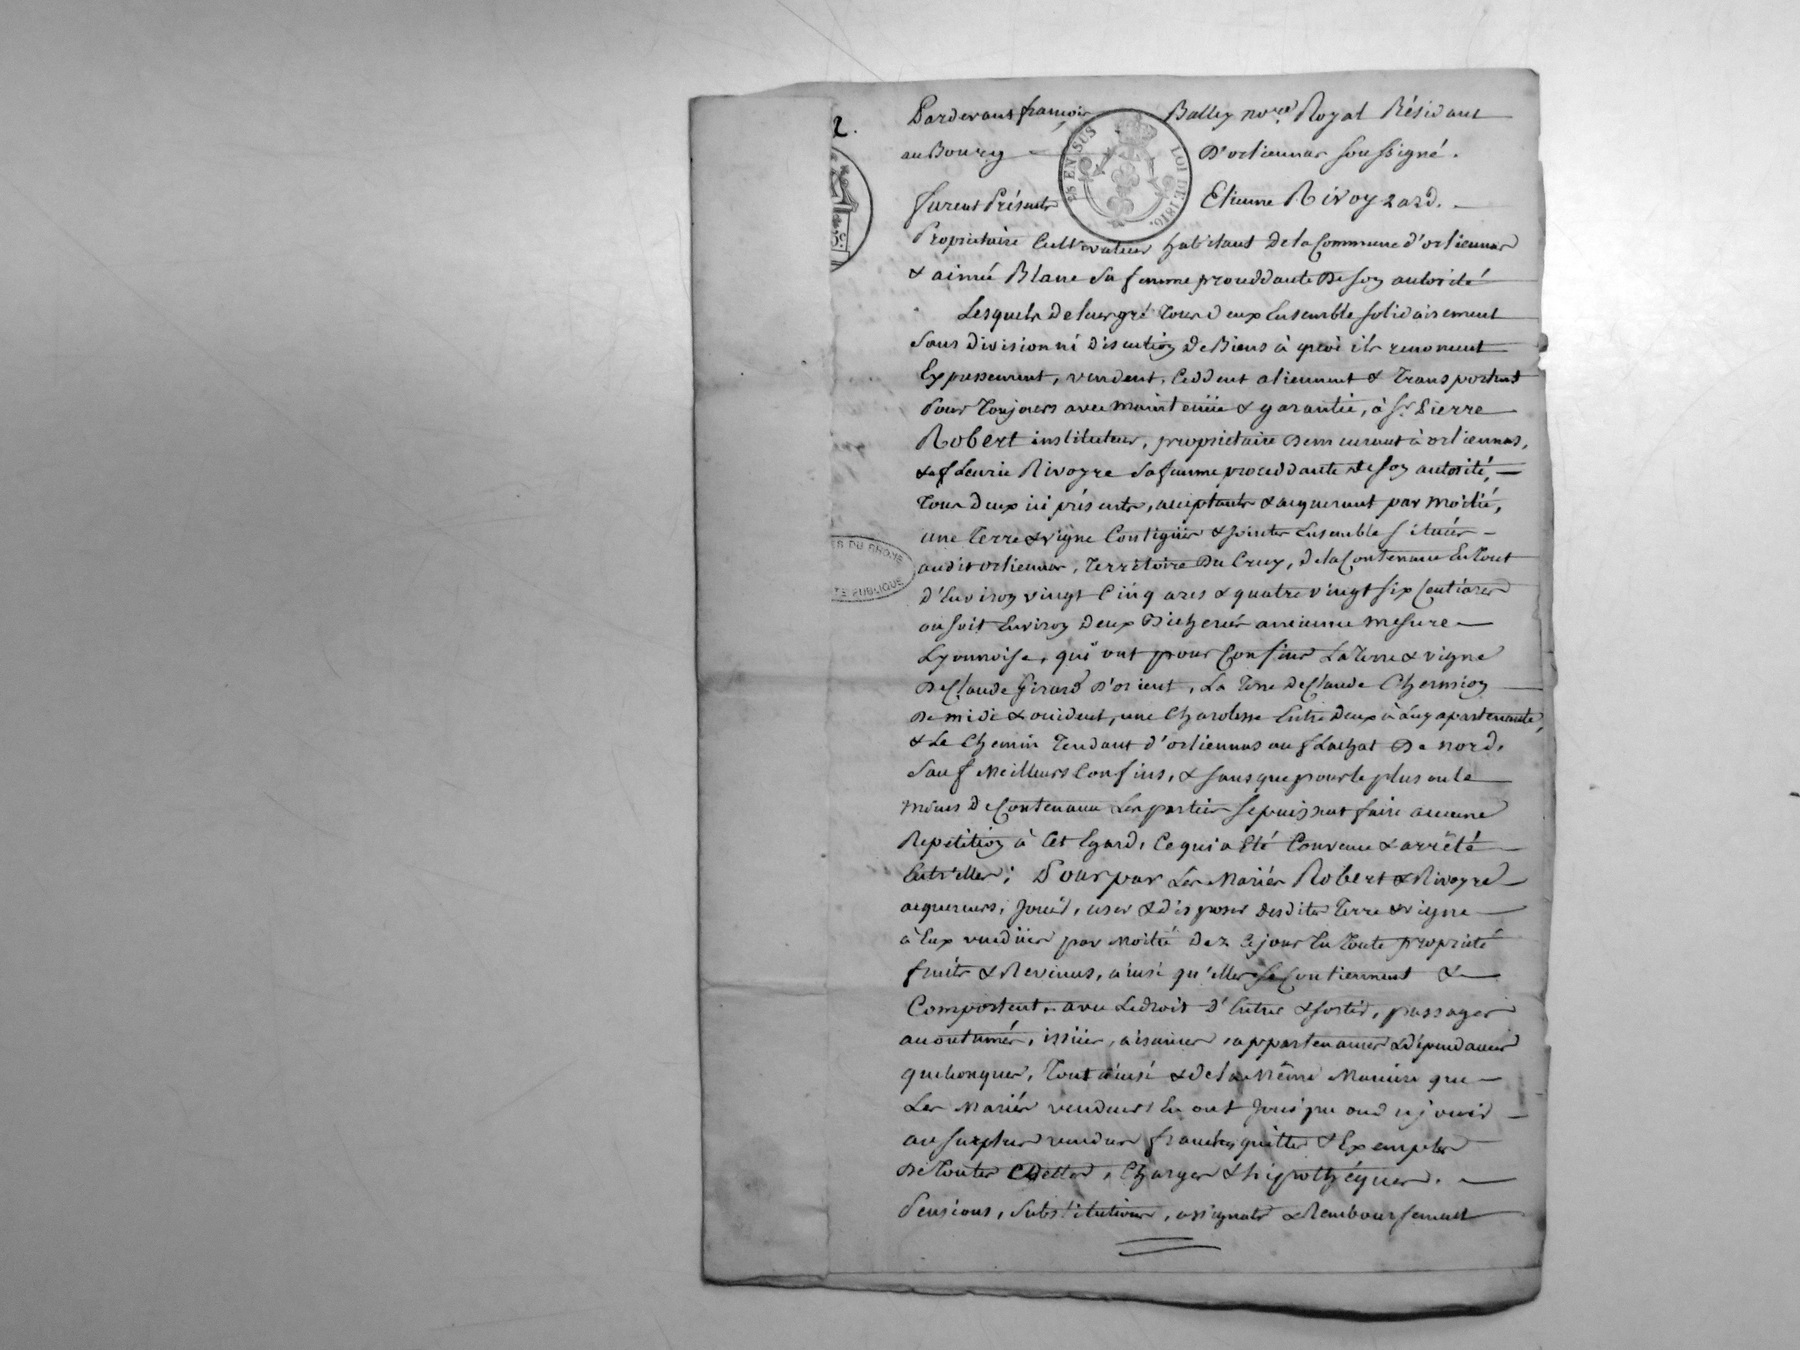 2.
Pardevant françois Balley no.re Royal Résidant
au Bourg D'orliennas soussigné.
furent Présents Etienne Rivoy2azd.
Propriétaire Cultivateur habitant de la Commune d'orliennas
& aimée Blanc sa femme proceddante de son autorité
Lesquels de leur gré tous deux Ensemble solidairement
sans division ni discution de Biens à quoi ils renoncent
Expressement, vendent, Ceddent alienent & transportent
Pour toujours avec maintenüe & garantie, à sr. Pierre
Robert instituteur, propriétaire demeurant à orliennas,
& a fleurie Rivoyre sa femme proceddante de son autorité,
tous deux ici présents, acceptants & acquerant par moitié,
une Terre & vigne Contigües & jointes Ensemble situées
audit orliennas, Territoire Du Cruy, de la Contenance En tout
d'Environ vingt Cinq ares & quatre vingt six Centiares
ou soit Environ deux Bicherées ancienne mesure
Lyonnoise, qui ont pour Confins La terre & vigne
De Claude Girard d'orient, La terre de Claude Chermion
De midi & occident, une Charolesse Entre deux à luy apartenante,
& Le Chemin tendant d'orliennas au flachat De nord,
sauf Meilleurs Confins, & sans que pour le plus ou le
moins de Contenance Les parties se puissent faire aucune
Repetition à Cet Egard, Ce qui a Eté Convenu & arrêté
Entr'elles; Pour par Les Mariés Robert & Rivoyre
acquereurs, jouir, user & disposer desdites terre & vigne
à Eux vendües par moitié dez ce jour En toute propriété
fruits & Revenus, ainsi qu'elles se Contiennent &
Comportent, avec Le droit d'Entrée & sortie, passages
accoutumés, issües, aisances, appartenances & dépendances
quelconques, tout ainsi & de la Même Maniere que
Les Mariés vendeurs En ont joui pu ou dû jouir
au surplus vendües franches quittes & Exemptes
De toutes Dettes, Charges & hipothéques,
Pensions, substitutions, assignats & Remboursement
ES EN SUS LOI DE 1816.
ES DU RHONE
TE PUBLIQUE